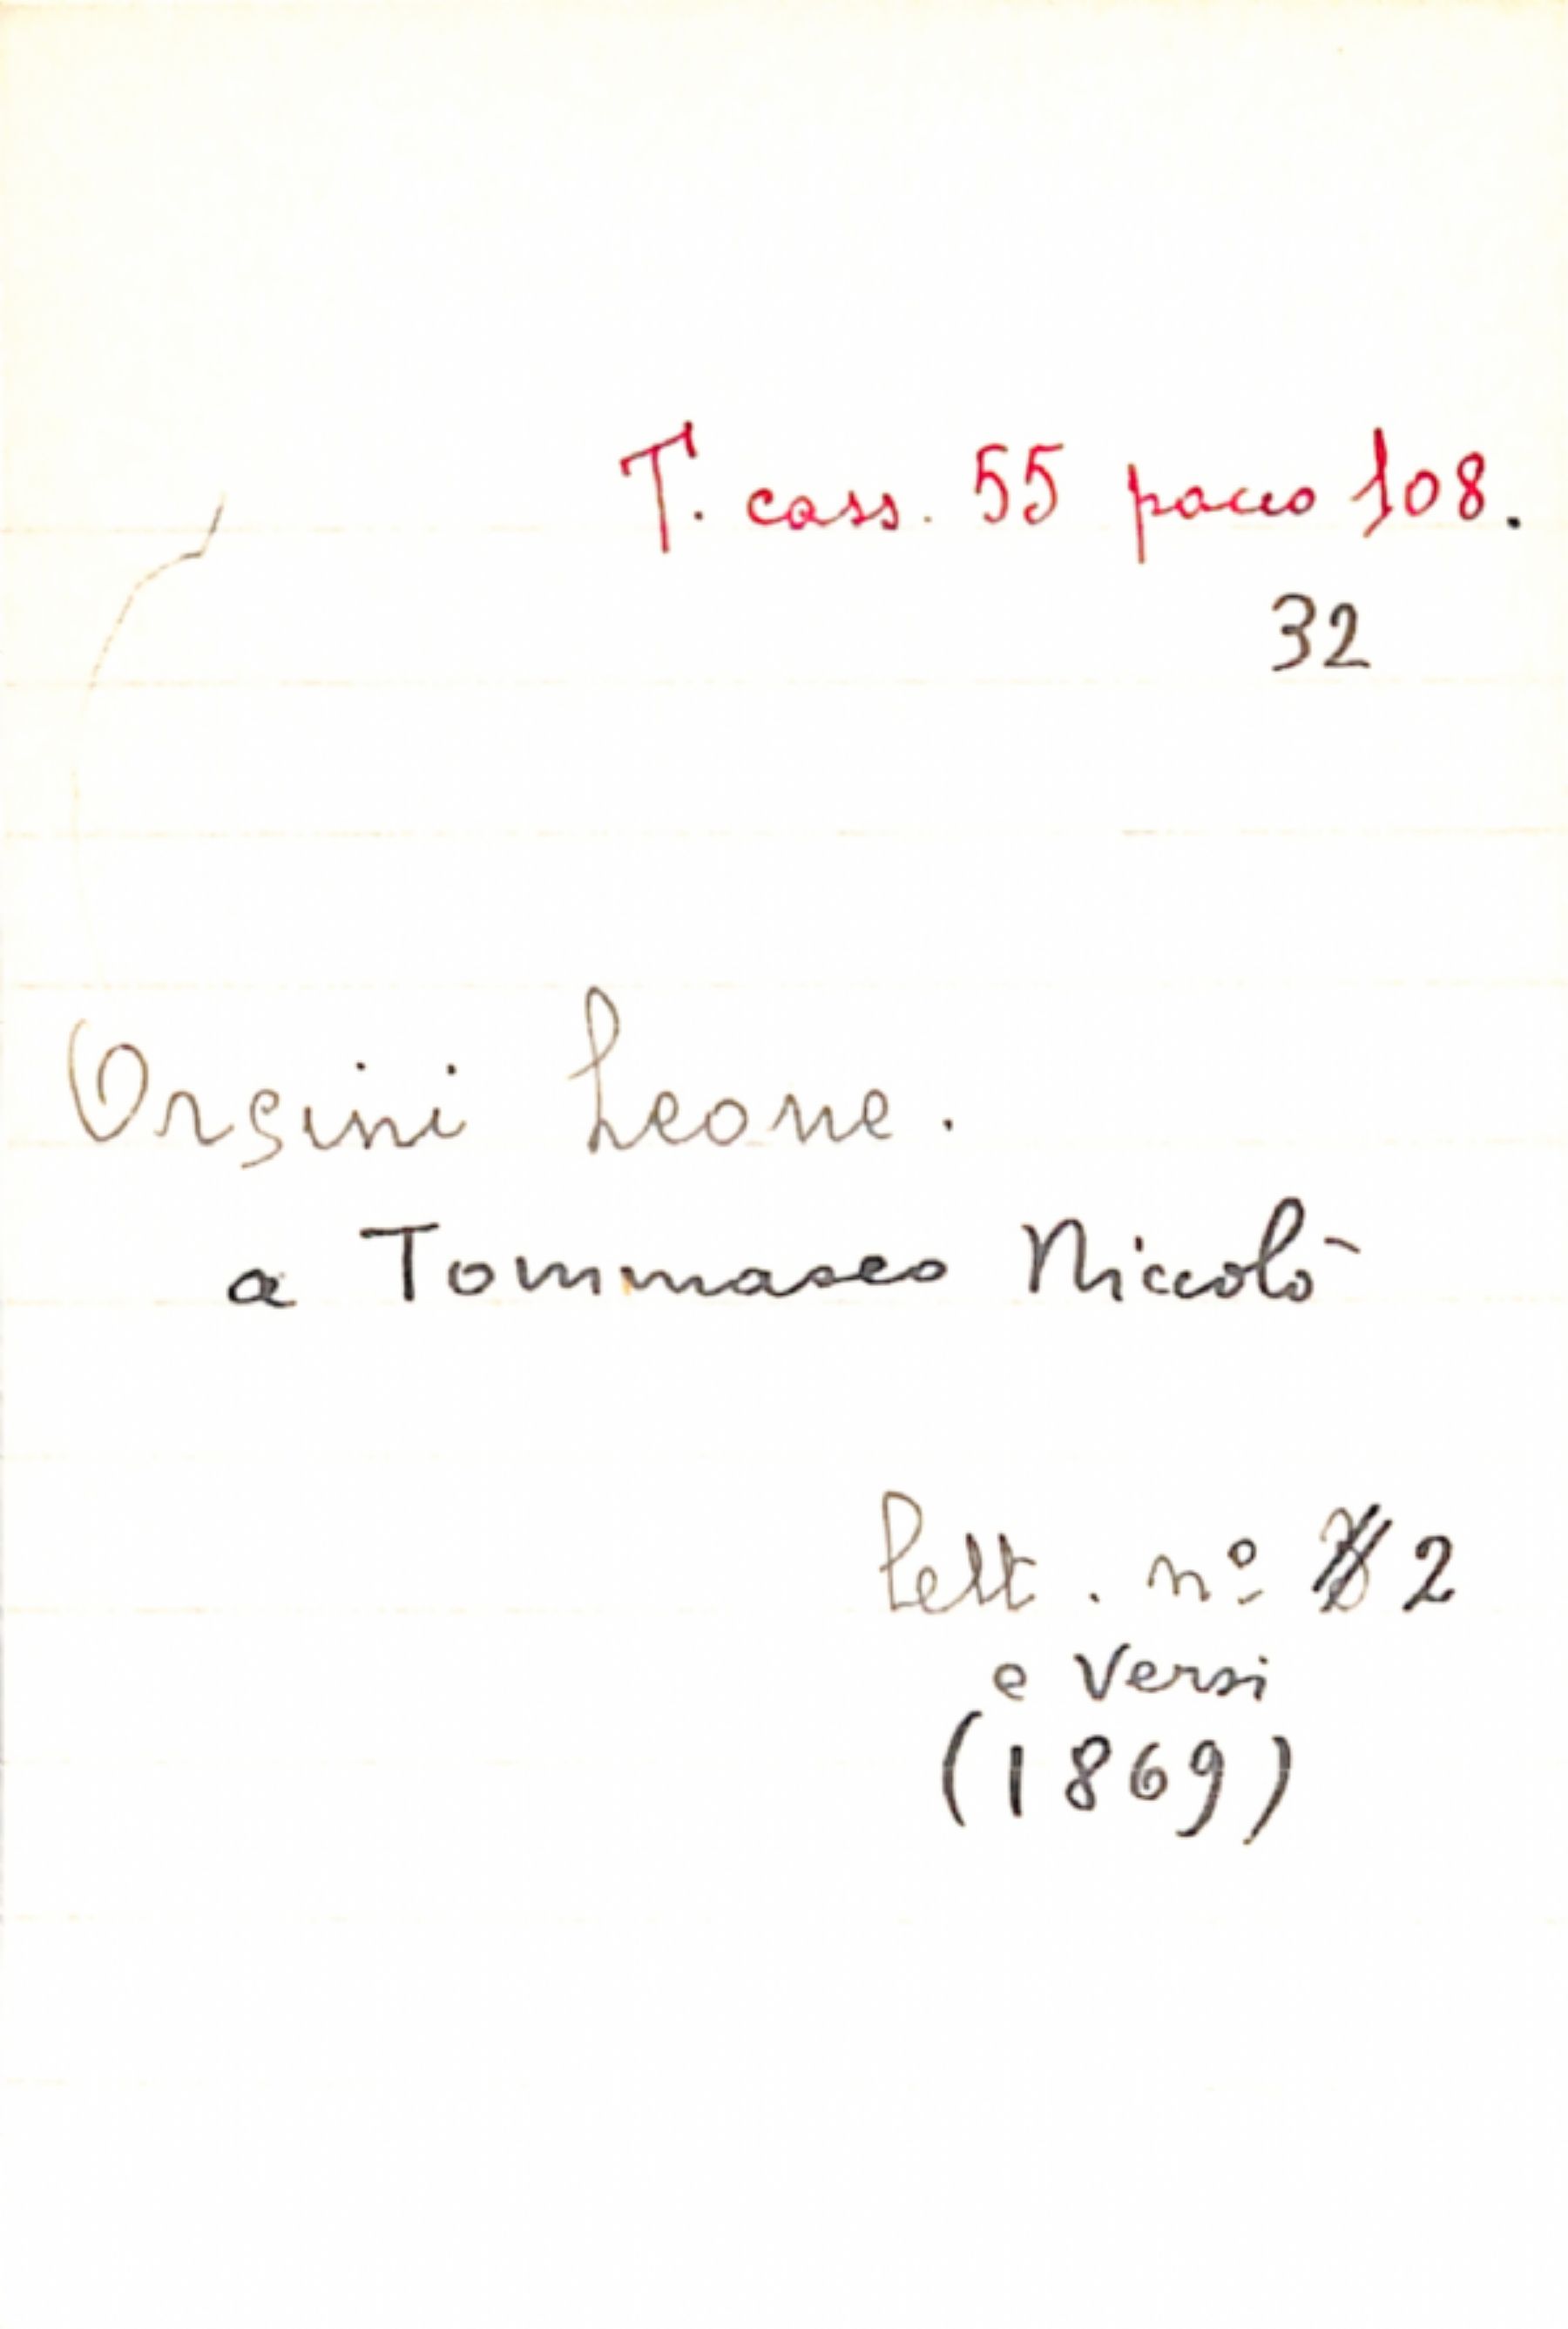 T. cass. 55 pacco 108.
32
Orsini Leone.
a Tommaseo Niccolò
Lett. nº 2
e versi
(1869)